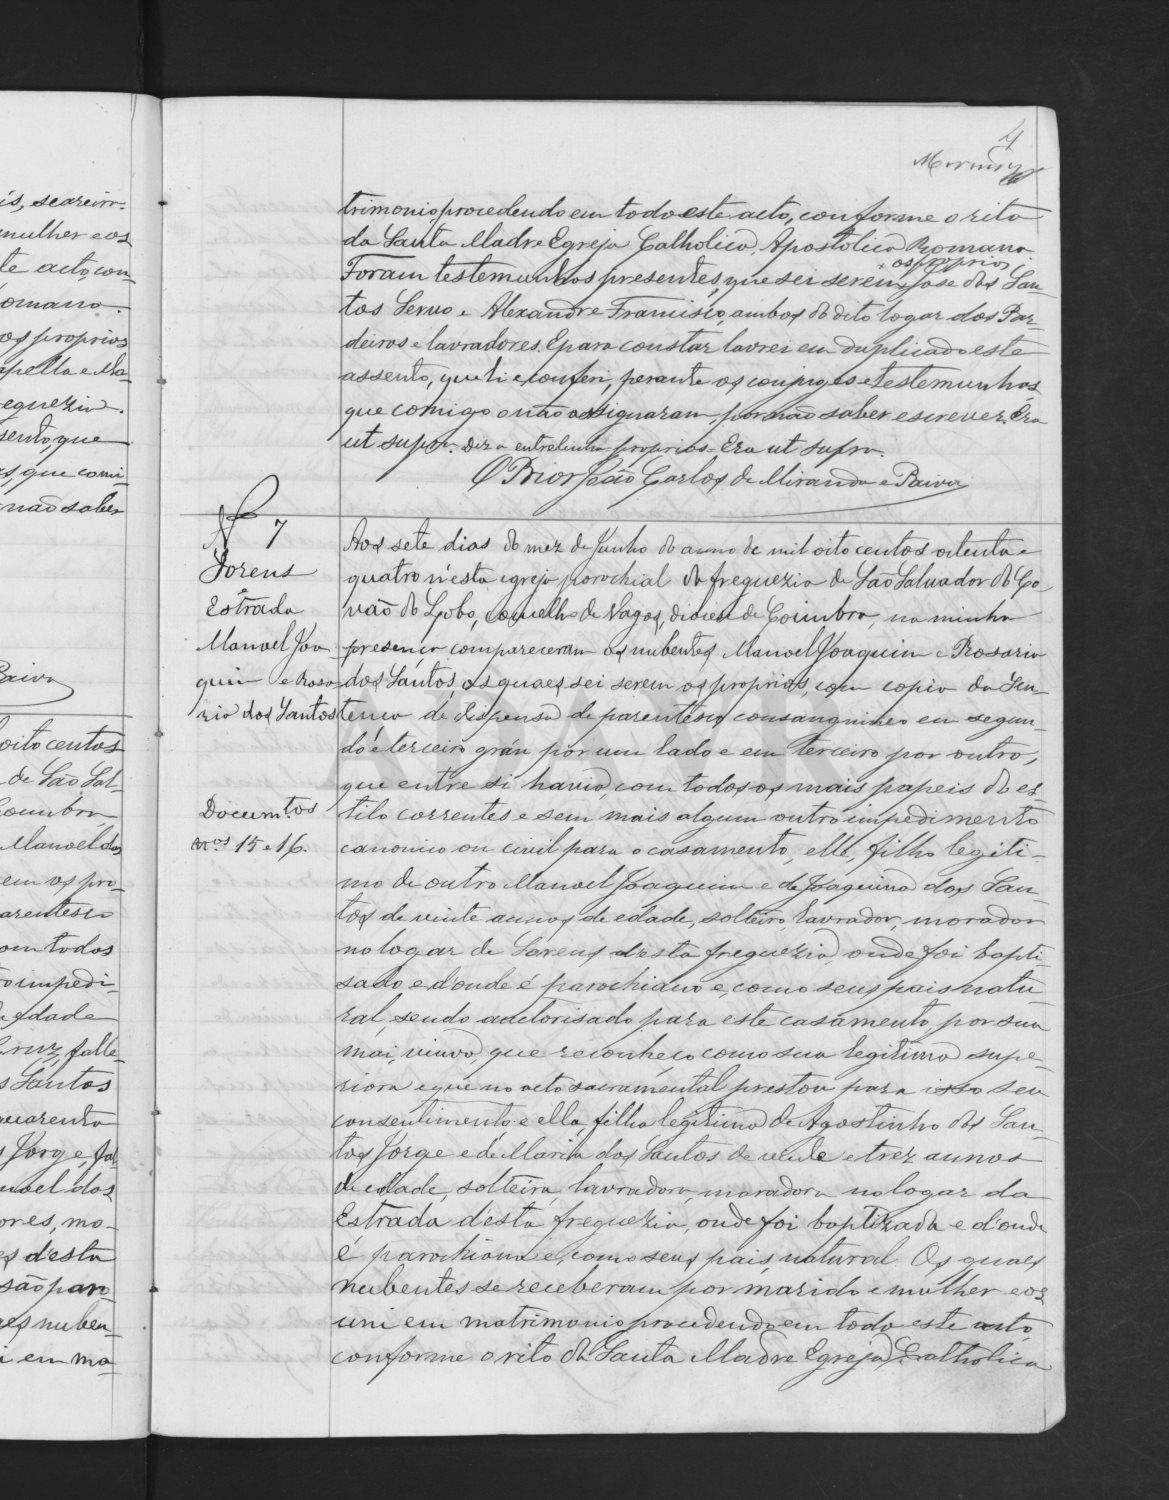 4
trimonio, procedendo em todo este acto, conforme o rito
da Santa Madre Egreja Catholica, Apostolica Romana.
os proprios
Foram testemunhas presentes, que sei serem José dos San-
tos Servo e Alexandre Francisco, ambos do dito logar dos Par-
deiros e lavradores. E para constar lavrei em duplicado este
assento, que li e conferi, perante os conjuges e testemunhas
que comigo o não assignaram, por não saber escrever. Era
ut supra. Diz a entrelinha = proprios = Era ut supra.
O Prior João Carlos de Miranda e Paiva
Nº 7
Sorens
Estrada
Manoel Joa-
quim e Rosa-
rio dos Santos
Docum.tos
n.os 15 e 16.
Aos sete dias do mez de Junho do anno de mil oito centos oitenta e
quatro n'esta egreja parochial da freguezia de São Salvador do Co-
vão do Lobo, concelho de Vagos, diocese de Coimbra, na minha
presença compareceram os nubentes Manoel Joaquim e Rosario
dos Santos, os quaes sei serem os proprios, com copia da Sen-
tença de dispensa de parentesco consanguineo em segun-
do é terceiro gráu por um lado e em terceiro por outro,
que entre si havia, com todos os mais papeis do es-
tilo correntes e sem mais algum outro impedimento
canonico ou civil para o casamento, elle, filho legiti-
mo de outro Manoel Joaquim e de Joaquina dos San-
tos de vinte annos de edade, solteiro, lavrador, morador
no logar de Sorens d'esta freguezia, onde foi bapti-
sado e d'onde é parochiano e, como seus pais natu-
ral, sendo auctorisado para este casamento, por sua
mãi, viuva, que reconheço como sua legitima supe-
riora e que no acto sacramental prestou para isso seu
consentimento e ella, filha legitima de Agostinho dos San-
tos Jorge e de Maria dos Santos de vinte e trez annos
de edade, solteira, lavradora, moradora no logar da
Estrada d'esta freguezia, onde foi baptizada e d'onde
é parochiana e, como seus pais, natural. Os quaes
nubentes se receberam por marido e mulher e os
uni em matrimonio, procedendo em todo este acto,
conforme o rito da Santa Madre Egreja, Catholica